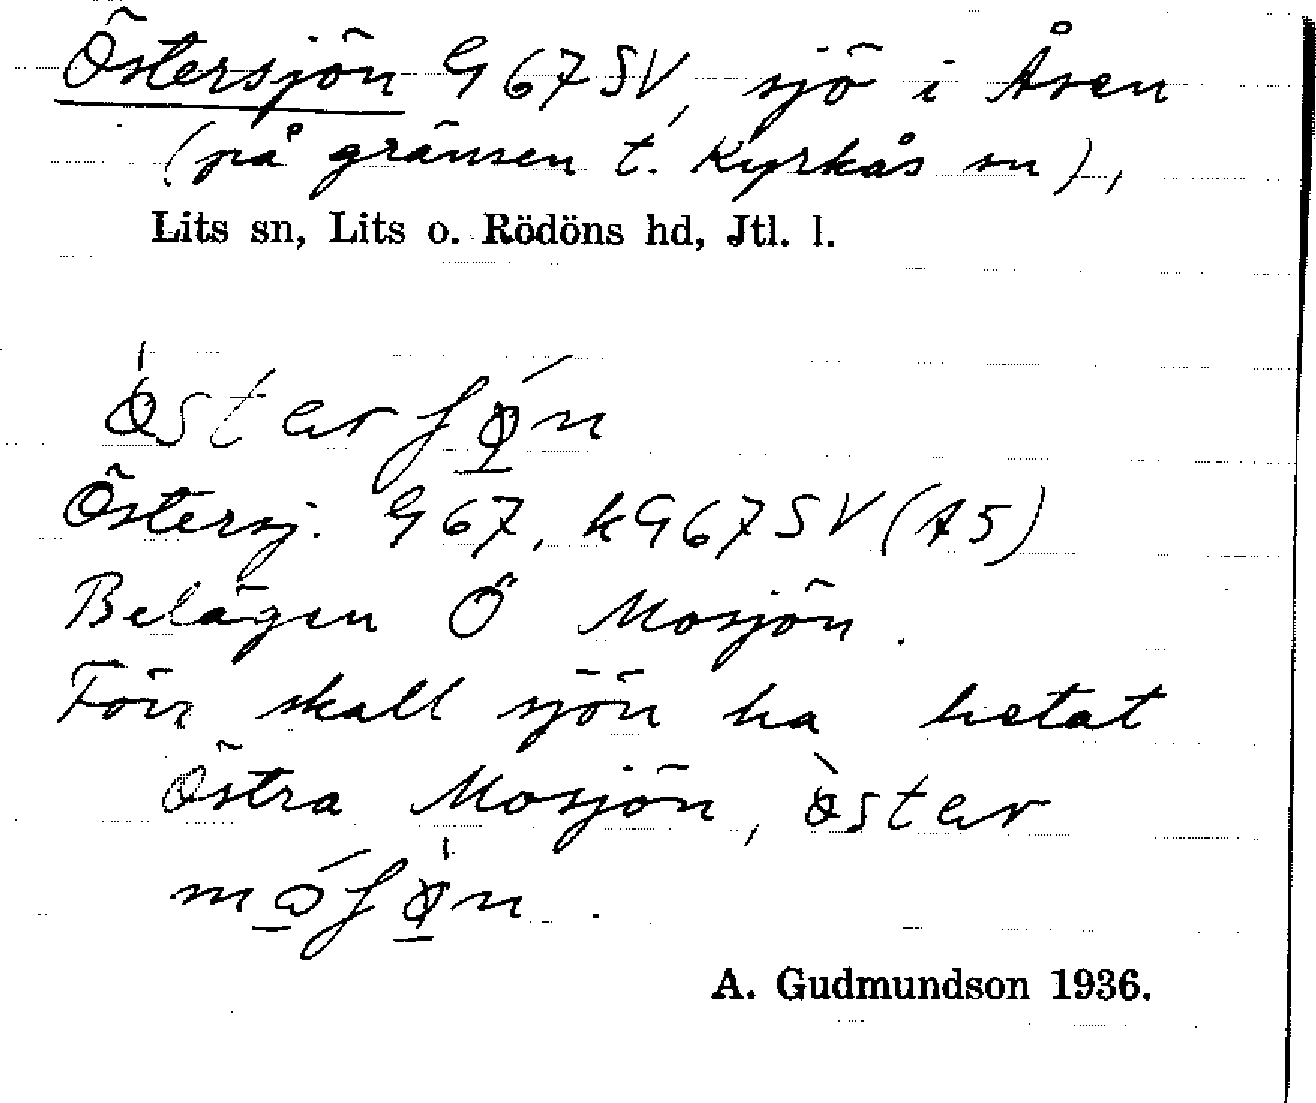 Östersjön G 67 SV, sjö i Åsen
(på gränsen t. Kyrkås sn),
Lits sn, Lits o. Rödöns hd, Jtl. l.
ø̀stər ʃǿ̱n
Östersj. G 67, kG67SV (A5)
Belägen Ö Mosjön.
Förr skall sjön ha hetat
Östra Mosjön, ø̀stər
mó̱ʃø̱̀n.
A. Gudmundson 1936.